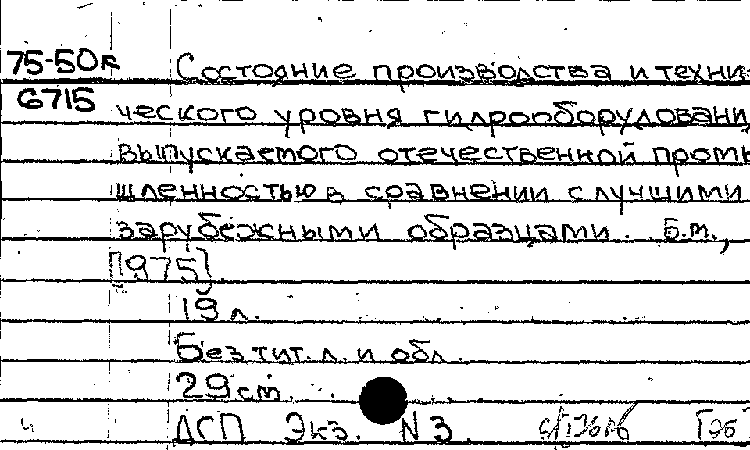 75-50к Состояние производства и техни-
6715 ческого уровня гидрооборудовани
выпускаемого отечественной промы
шленностью в сравнении с лучшими
зарубежными образцами. Б.м.,
[1975].
19 л.
Без тит. л. и обл.
29 см.
ДСП Экз. N 3.